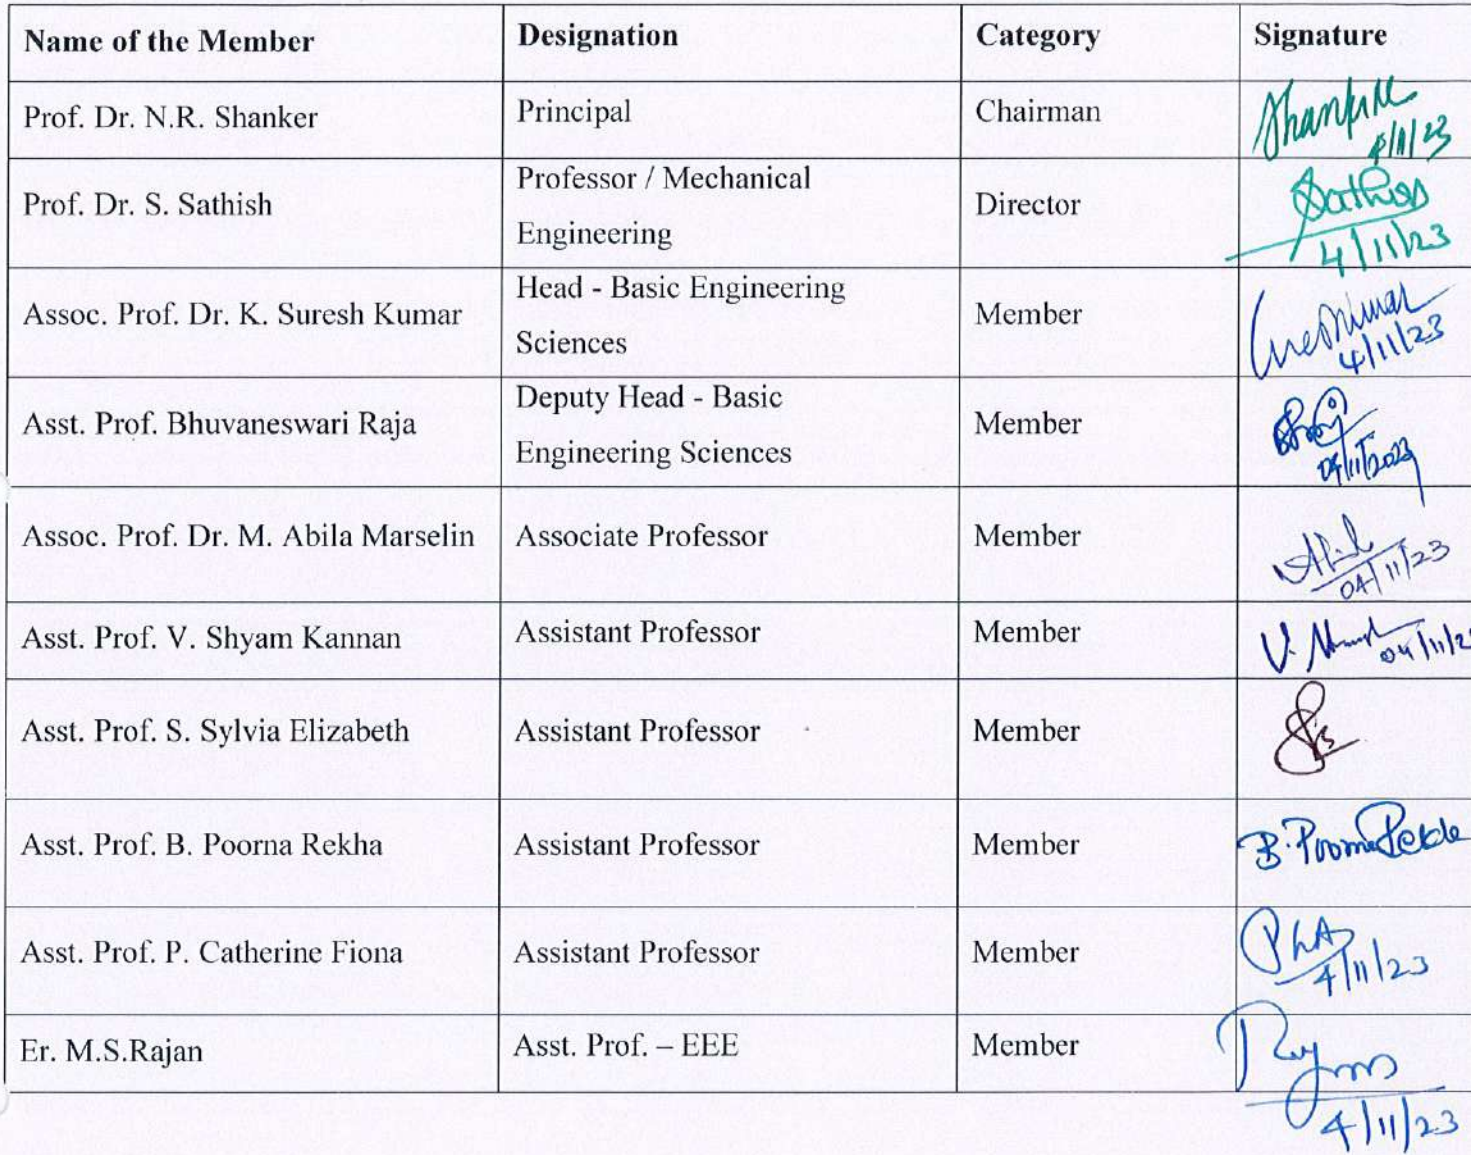 Name of the Member Designation Category Signature
Prof. Dr. N.R. Shanker Principal Chairman
Prof. Dr. S. Sathish Professor / Mechanical Engineering Director Sathish
4/11/23
Assoc. Prof. Dr. K. Suresh Kumar Head - Basic Engineering Sciences Member
4/11/23
Asst. Prof. Bhuvaneswari Raja Deputy Head - Basic Engineering Sciences Member
04/11/2023
Assoc. Prof. Dr. M. Abila Marselin Associate Professor Member
04/11/23
Asst. Prof. V. Shyam Kannan Assistant Professor Member V.
04/11/2
Asst. Prof. S. Sylvia Elizabeth Assistant Professor Member
Asst. Prof. B. Poorna Rekha Assistant Professor Member B. Poorna Rekha
Asst. Prof. P. Catherine Fiona Assistant Professor Member
4/11/23
Er. M.S.Rajan Asst. Prof. – EEE Member
4/11/23